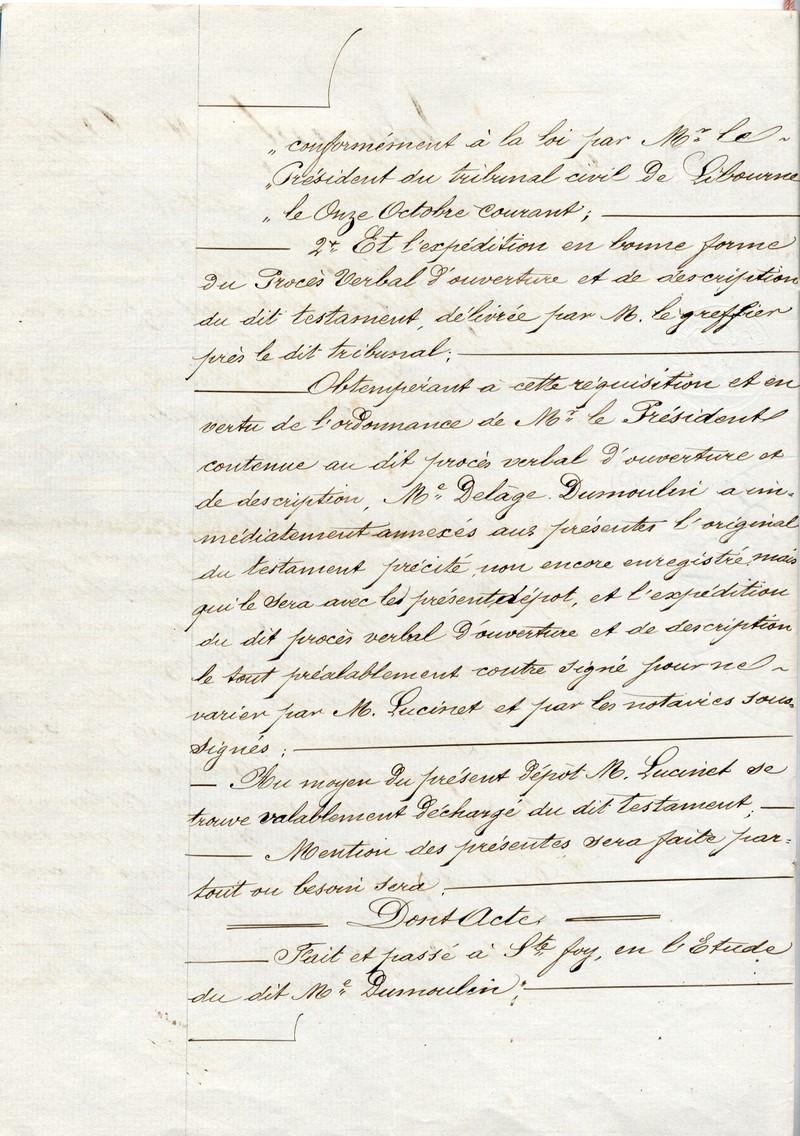 „ conformément à la loi par Mr. le
„ Président du tribunal civil de Libourne
„ le Onze Octobre courant;
2° Et l'expédition en bonne forme
du Procès Verbal d'ouverture et de description
du dit testament, délivrée par M. le greffier
près le dit tribunal;
Obtempérant à cette réquisition et en
vertu de l'ordonnance de Mr. le Président
contenue au dit procès verbal d'ouverture et
de description, Me. Delâge Dumoulin a im-
médiatement annexés aux présentes l'original
du testament précité, non encore enregistré, mais
qui le sera avec le présent dépot, et l'expédition
du dit procès verbal d'ouverture et de description
le tout préalablement contre signé pour ne
varier par M. Lucinet et par les notaires sous-
signés;
Au moyen du présent dépôt M. Lucinet se
trouve valablement déchargé du dit testament;
Mention des présentes sera faite par=
tout ou besoin sera.
Dont Acte,
Fait et passé à Ste. foy, en l'Etude
du dit Me. Dumoulin;